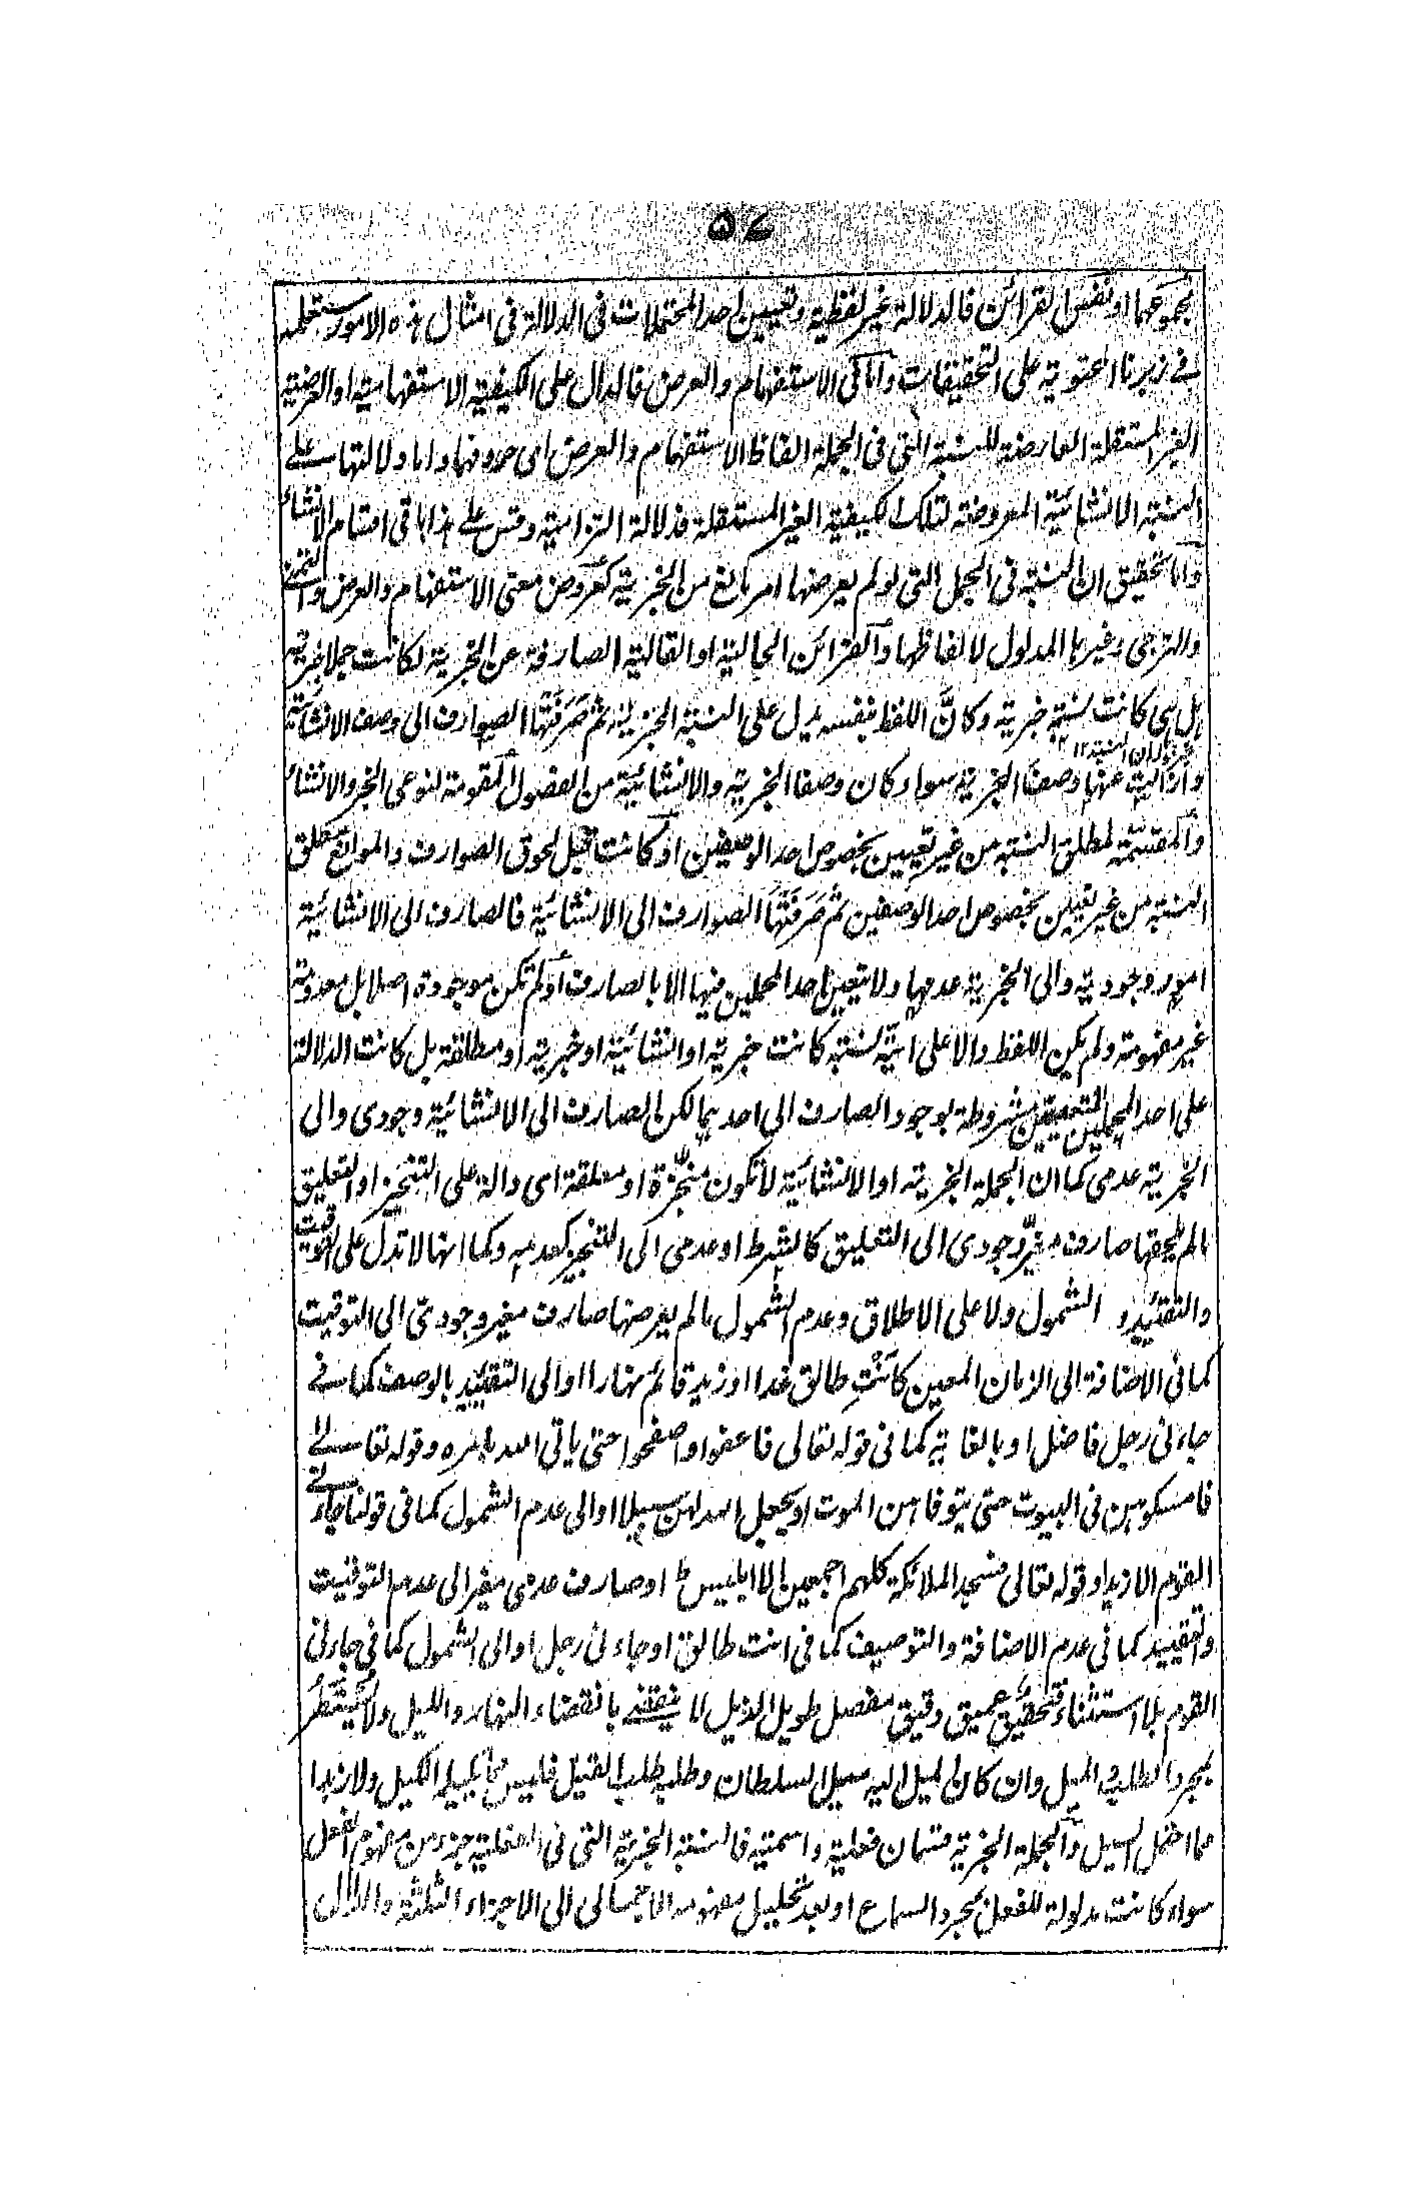 ۵۷
مجموعهما او نفس القرائن فالدلالة غير لفظية وتعيين احد المحتملات فى الدلالة فى امثال هذه الامور ستعلمه
فى زبرنا المحتوية على التحقيقات واما فى الاستفهام والعرض فالدال على الكيفية الاستفهامية او العرضية
الغير المستقلة العارضة للنسبة التى فى الجملة الفاظ الاستفهام والعرض اى حروفها واما دلالتها على
النسبة الانشائية المعروضة لتلك الكيفية الغير المستقلة فدلالة التزامية وقس على هذا باقى اقسام الانشاء
واما تحقيق ان النسبة فى الجمل التى لو لم يعرضها امر مانع من الخبرية كعروض معنى الاستفهام والعرض والتمنى
والترجى وغيرها المدلول لالفاظها والقرائن الحالية او القالية الصارفة عن الخبرية لكانت جملا خبرية
بل هى كانت نسبة خبرية وكان اللفظ بنفسه يدل على النسبة الخبرية ثم صَرَفَتْها الصوارف الى وصف الانشائية
وازالت عنها وصف الخبرية سواء كان وصفا الخبرية والانشائية من الفصول المقومة لنوعى الخبر والانشاء
والمقسمة لمطلق النسبة من غير تعيين بخصوص احد الوصفين او كانت قبل لحوق الصوارف والموانع مطلق
النسبة من غير تعيين بخصوص احد الوصفين ثم صَرَفَتْها الصوارف الى الانشائية فالصارف الى الانشائية
امور وجودية والى الخبرية عدمها ولا يتعين احد المحملين فيها الا بالصارف او لم تكن موجودة اصلا بل معدومة
غير مفهومة ولم يكن اللفظ دالا على اية نسبة كانت خبرية او انشائية او خبرية او مطلقة بل كانت الدلالة
على احد المحملين المتعينين مشروطة بوجود الصارف الى احدهما لكن الصارف الى الانشائية وجودى والى
الخبرية عدمى كما ان الجملة الخبرية او الانشائية لا تكون منجّزة او معلقة اى دالة على التنجيز او التعليق
ما لم يلحقها صارف مغيّر وجودى الى التعليق كالشرط او عدمى الى التنجيز كعدمه وكما انها لا تدل على التوقيت
والتقييد و الشمول ولا على الاطلاق وعدم الشمول ما لم يعرضها صارف مغير وجودىّ الى التوقيت
كما فى الاضافة الى الزمان المعين كانتِ طالق غدا او زيد قائم نهارا او الى التقييد بالوصف كما فى
جاءنى رجل فاضل او بالغاية كما فى قوله تعالى فاعفوا واصفحوا حتى ياتى الله بامره وقوله تعالى
فامسكوهن فى البيوت حتى يتوفاهن الموت او يجعل الله لهن سبيلا او الى عدم الشمول كما فى قولنا جاءنى
القوم الا زيدا وقوله تعالى فسجد الملائكة كلهم اجمعين الا ابليس او صارف عدمى مغير الى عدم التوقيت
والتقييد كما فى عدم الاضافة والتوصيف كما فى انت طالق او جاءنى رجل او الى الشمول كما فى جاءنى
القوم بلا استثناء فتحقيق عميق دقيق مفصل طويل الذيل لا ينفد بانقضاء النهار والليل ولا يُنتَظر
بمجرد الطلب والميل وان كان الميل اليه ميل السلطان وطلبه طلب القتيل فليس مما يكيله الكيل ولا زبدا
مما احتمل السيل والجملة الخبرية قسمان فعلية واسمية فالنسبة الخبرية التى فى الفعلية جزء من مفهوم الفعل
سواء كانت مدلولة للفعل بمجرد السماع او بعد تحليل مفهومه الاجمالى الى الاجزاء الثلثة والدال